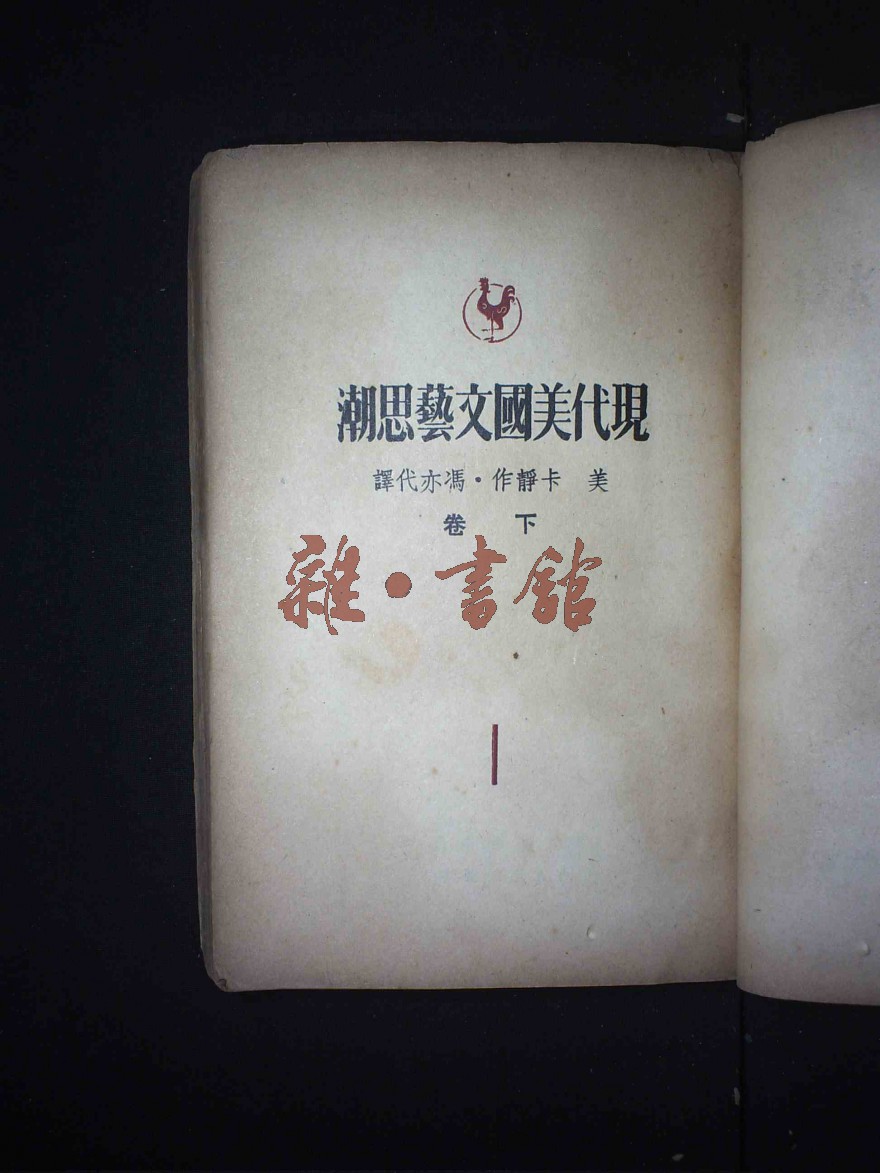 現代美國文藝思潮
美 卡靜作·馮亦代譯
下 卷
雜·書館